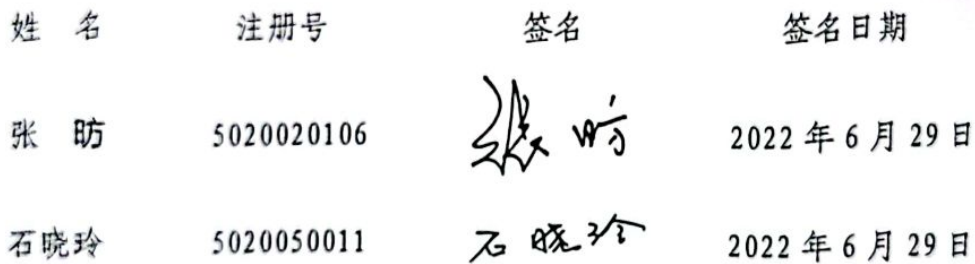 姓 名 注册号 签名 签名日期
张 昉 5020020106 张昉 2022年6月29日
石晓玲 5020050011 石晓玲 2022年6月29日